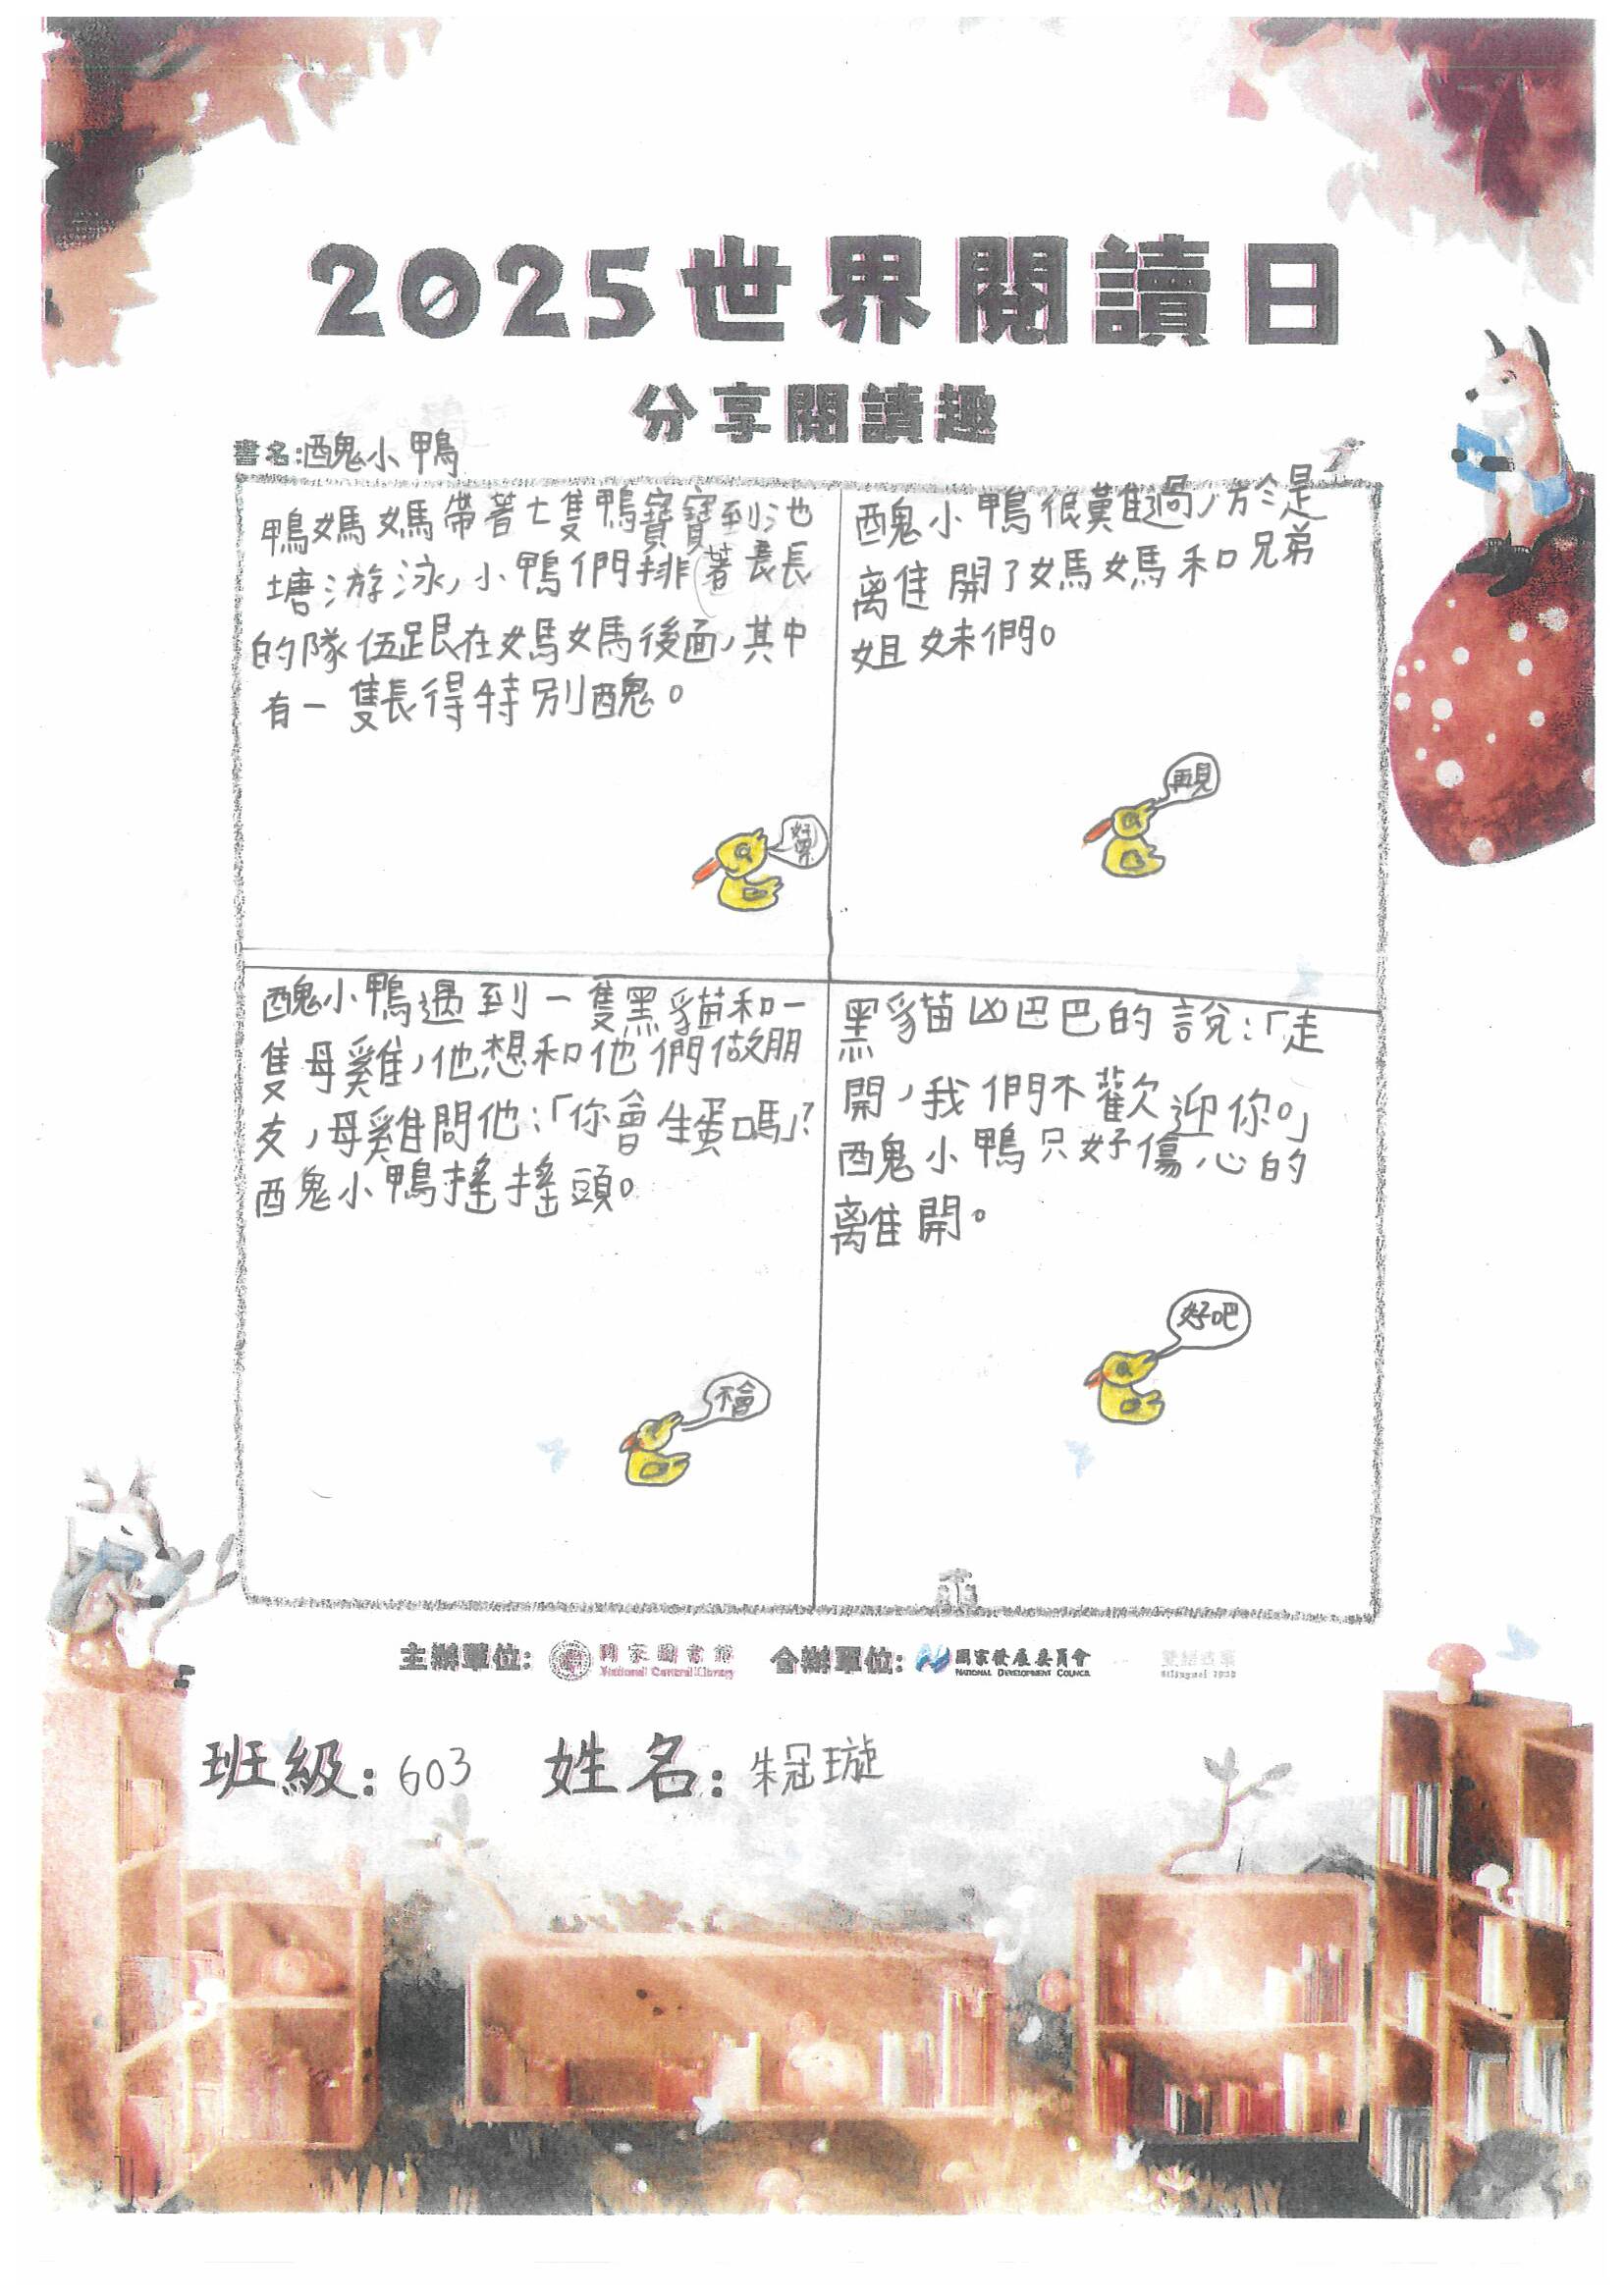 2025世界閱讀日
分享閱讀趣
書名:醜小鴨
鴨媽媽帶著七隻鴨寶寶到池
塘游泳,小鴨們排著長長
的隊伍跟在媽媽後面,其中
有一隻長得特別醜。
好累
醜小鴨很難過,於是
離開了媽媽和兄弟
姐妹們。
再見
醜小鴨遇到一隻黑貓和一
隻母雞,他想和他們做朋
友,母雞問他:「你會生蛋嗎」?
醜小鴨搖搖頭。
不會
黑貓凶巴巴的說:「走
開,我們不歡迎你。」
醜小鴨只好傷心的
離開。
好吧
主辦單位: 國家圖書館 National Central Library 合辦單位: 國家發展委員會 NATIONAL DEVELOPMENT COUNCIL
班級: 603 姓名: 朱冠璇